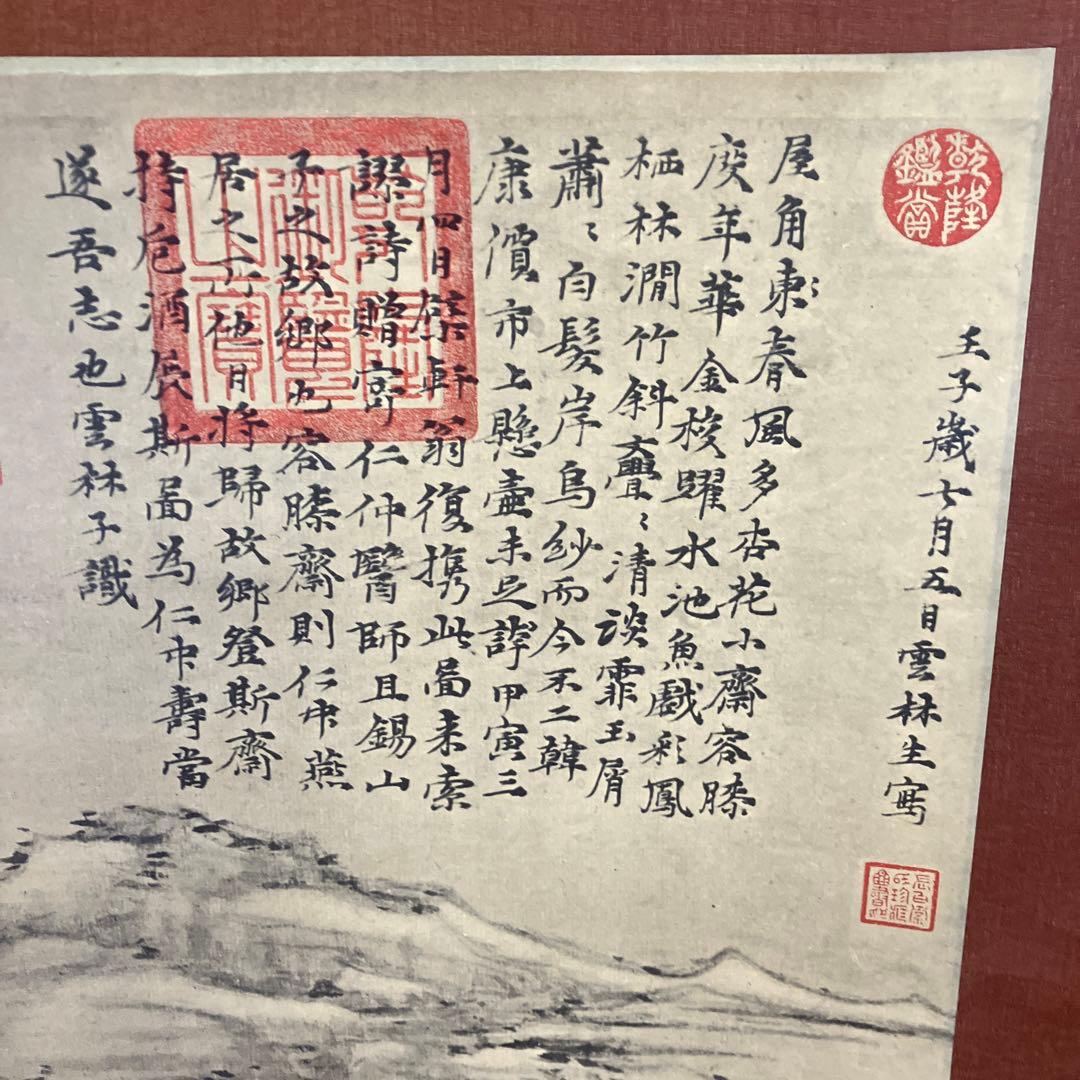 乾隆鑑賞
壬子歲七月五日雲林生寫
屋角東春風多杏花小齋容膝
度年華金梭躍水池魚戲彩鳳
栖林澗竹斜亹〻清談霏玉屑
蕭〻白髮岸烏紗而今不二韓
康價市上懸壺未足誇甲寅三
月四日檗軒翁復携此啚来索
謬詩贈寄仁仲醫師且錫山
予之故鄉也容膝齋則仁中燕
居之所他日將歸故鄉登斯齋
持巵酒展斯啚為仁中壽當
遂吾志也雲林子識
御覽
之寶